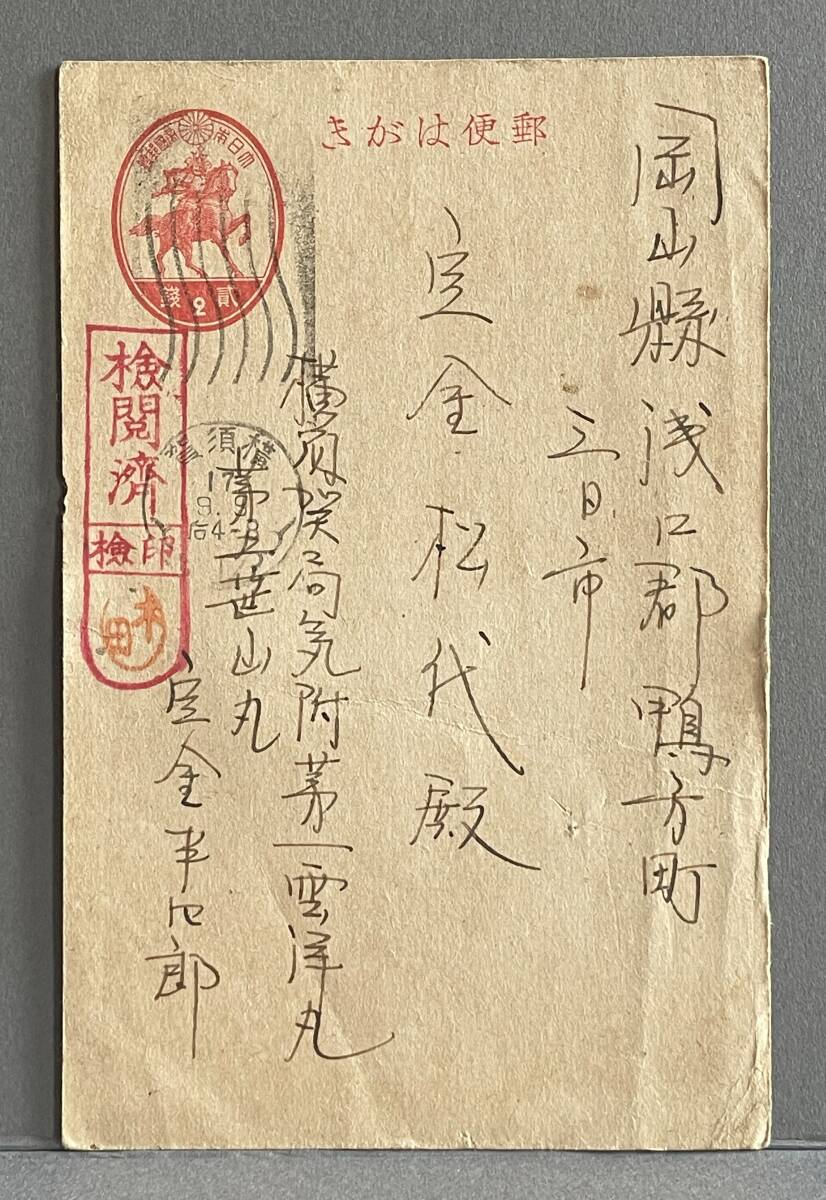 きがは便郵
岡山縣浅口郡鴨方町
三日市
定金松代殿
横須賀局気附第一雲洋丸
第三葉山丸
定金半四郎
大日本帝國郵便
貳2錢
檢閲濟
檢印
木田
横須賀
17
9.
后4-8